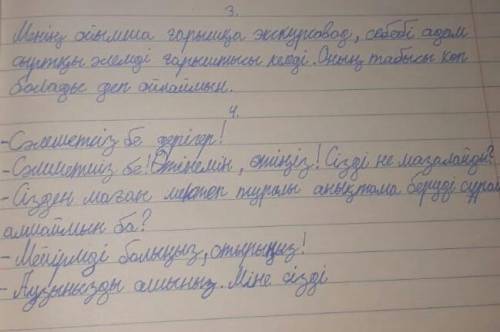 3.
Менің ойымша ғарышқа экскурсовод, себебі адам
сыртқы әлемді ғарыштысы келеді. Оның табысы көп
болады деп ойлаймын.
4.
- Сәлеметсіз бе дәрігер!
- Сәлеметсіз бе! Өтінемін, өтіңіз! Сізді не мазалайды?
- Сізден маған мектеп туралы анықтама беруді сұрай
алмаймын ба?
- Мейірімді болыңыз, отырыңыз!
- Аузыңызды ашыңыз. Міне сізді